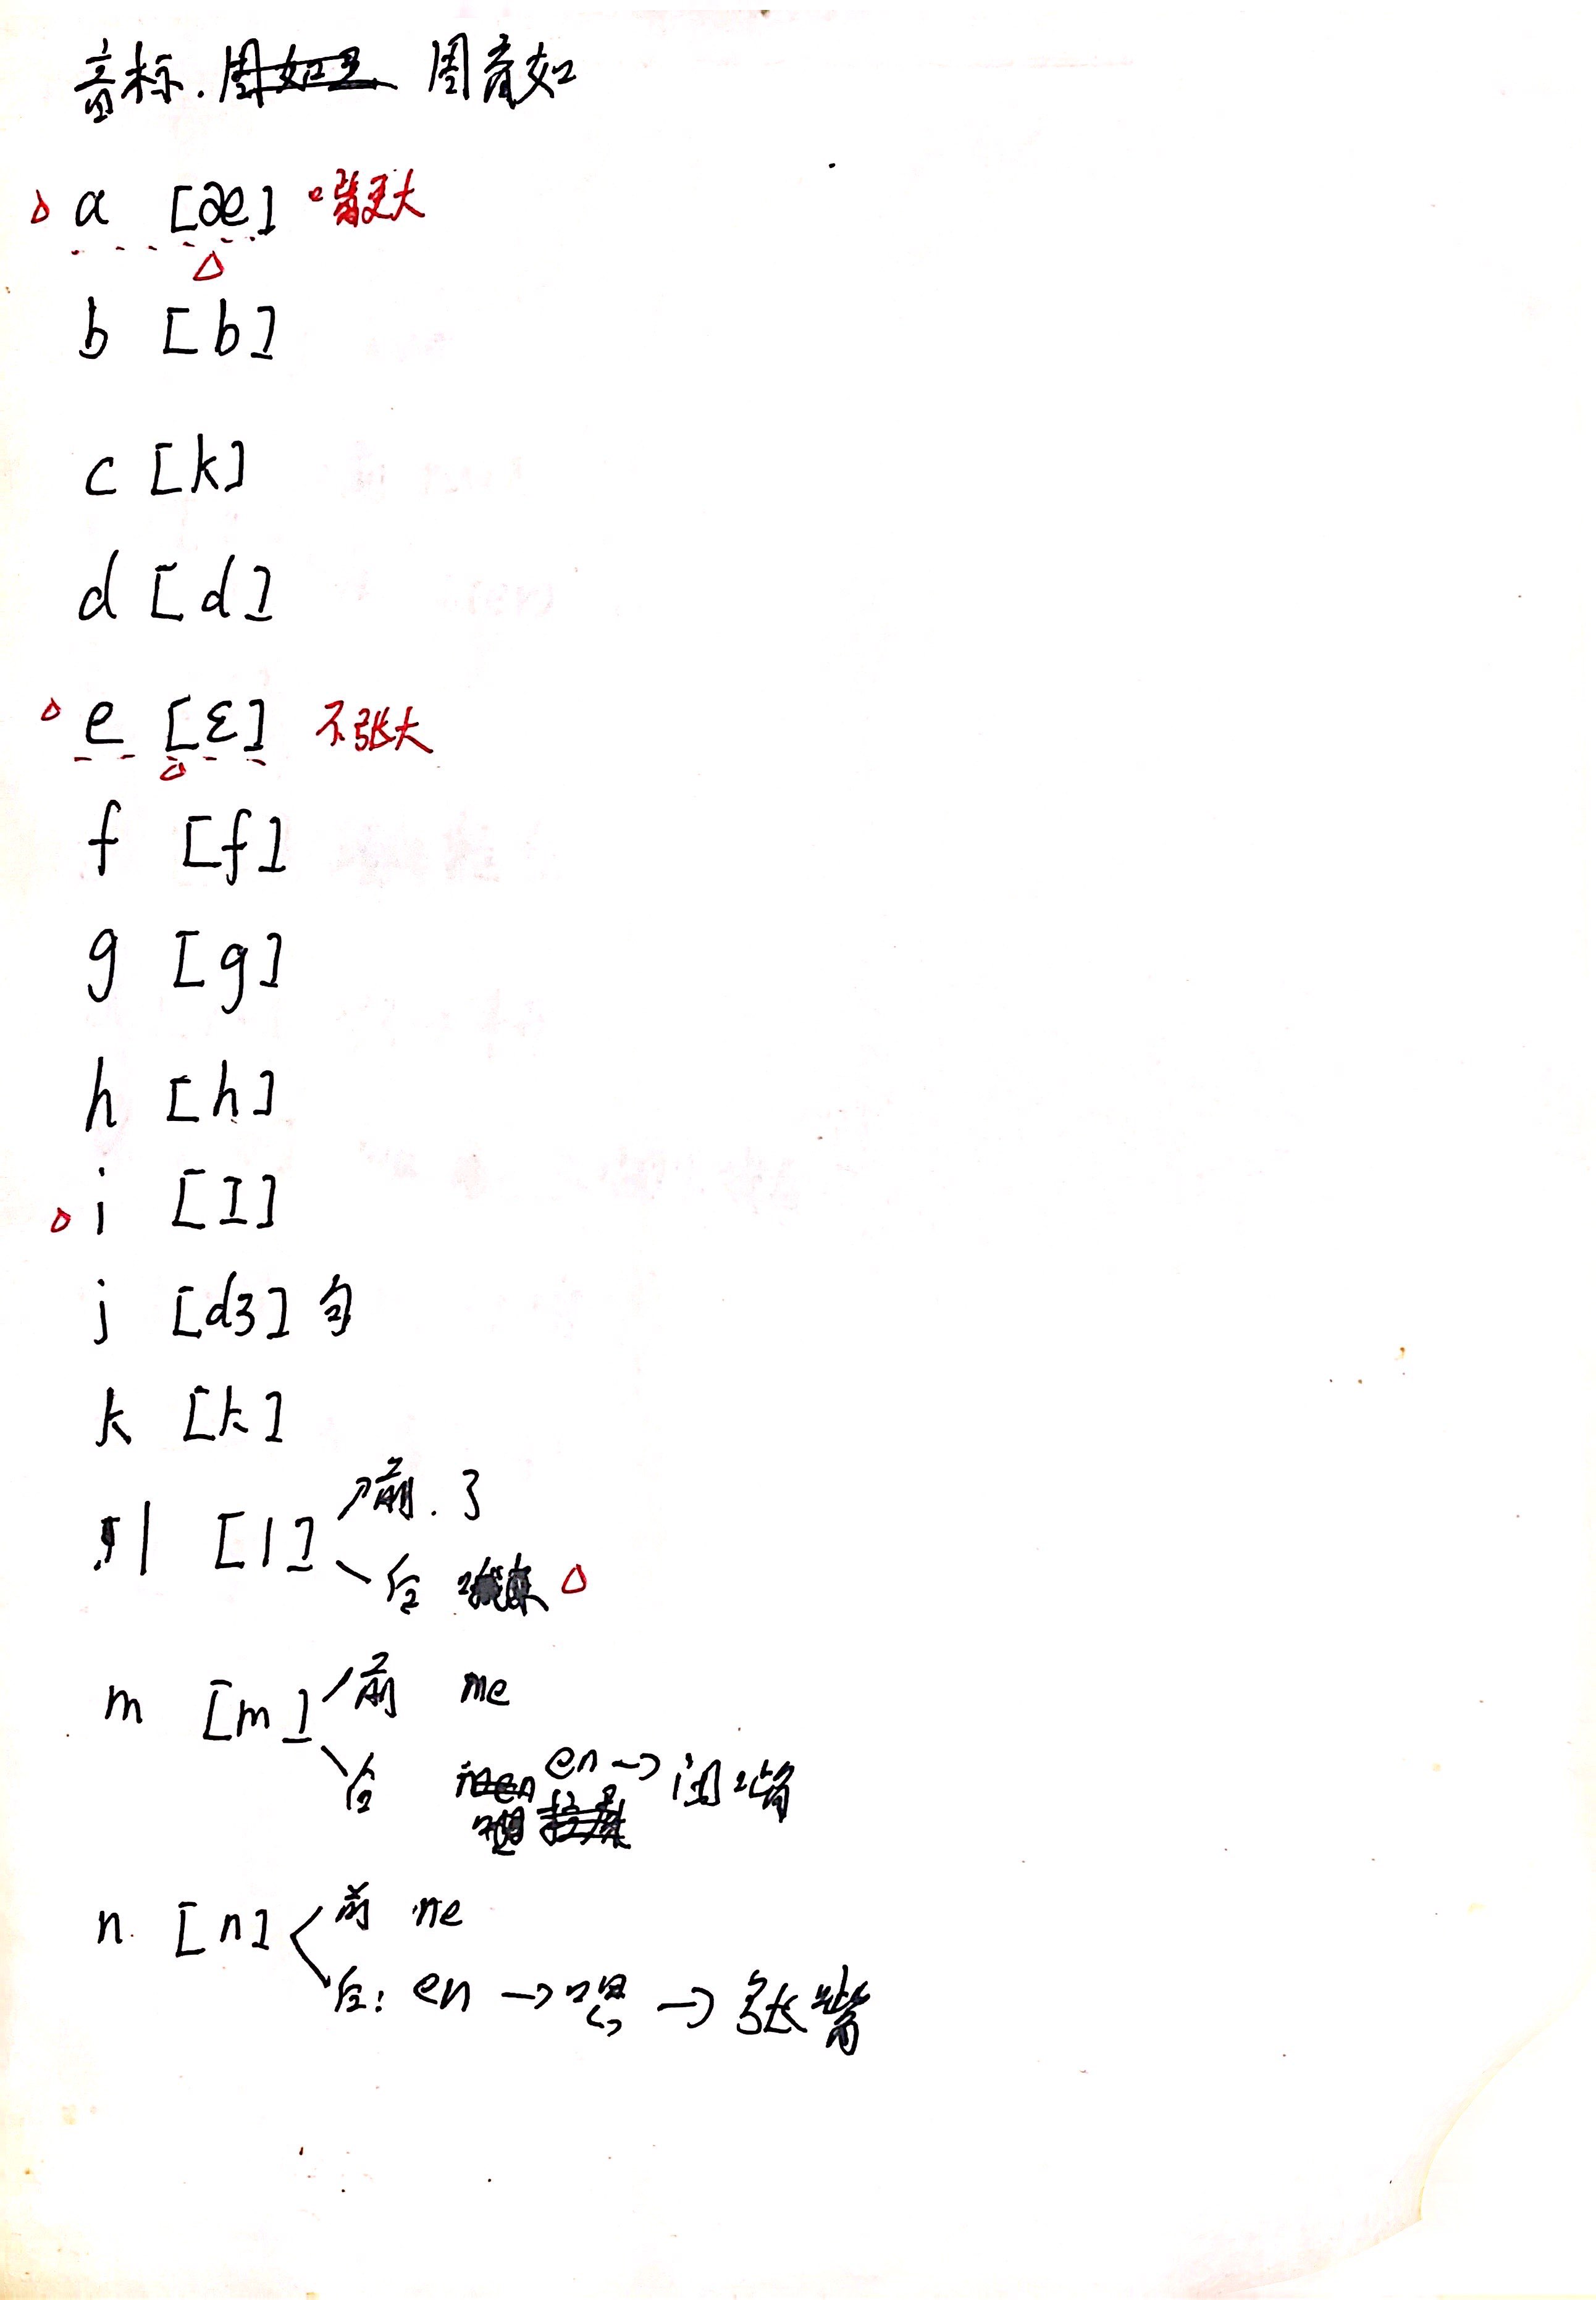 音标. 周育如
a [æ] 嘴更大
b [b]
c [k]
d [d]
e [ɛ] 不张大
f [f]
g [g]
h [h]
i [I]
j [dʒ]
k [k]
l [l] 前. 了
后
m [m] 前 me
后 en → 闭嘴
n. [n] 前 ne
后: en → 嗯 → 张嘴